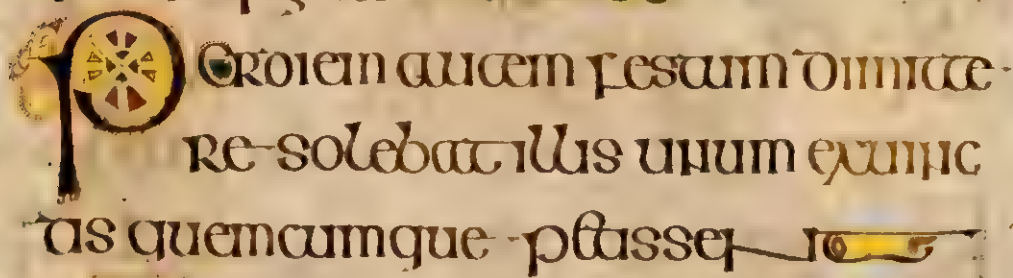 Per diem autem festum dimitte
re solebat illis unum ex uinc
tis quemcumque petissent